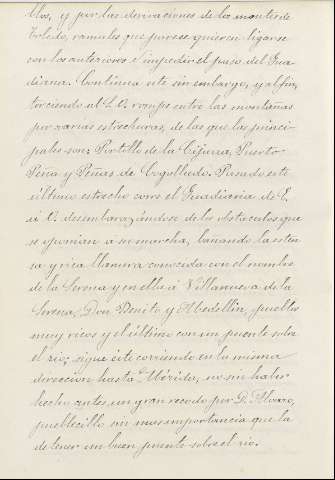 blos, y por las derivaciones de los montes de
Toledo, ramales que parece quieren ligarse
con los anteriores é impedir el paso del Gua-
diana. Continúa este sin embargo, y al fin,
torciendo al S.O. rompe entre las montañas
por varias estrechuras, de las que las princi-
pales son: Portillo de la Cijara, Puerto
Peña y Peñas de Cogolludo. Pasado este
último estrecho corre el Guadiana de E.
á O. desembarazándose de los obstaculos que
se oponian a su marcha, banando la esten-
sa y rica llanura conocida con el nombre
de la Serena y en ella á Villanueva de la
Serena, Don Benito y Medellin, pueblos
muy ricos y el último con un puente sobre
el rio; sigue éste corriendo en la misma
direccion hasta Mérida, no sin haber
hecho antes un gran recodo por D. Alvaro,
pueblecillo sin mas importancia que la
de tener un buen puente sobre el rio.